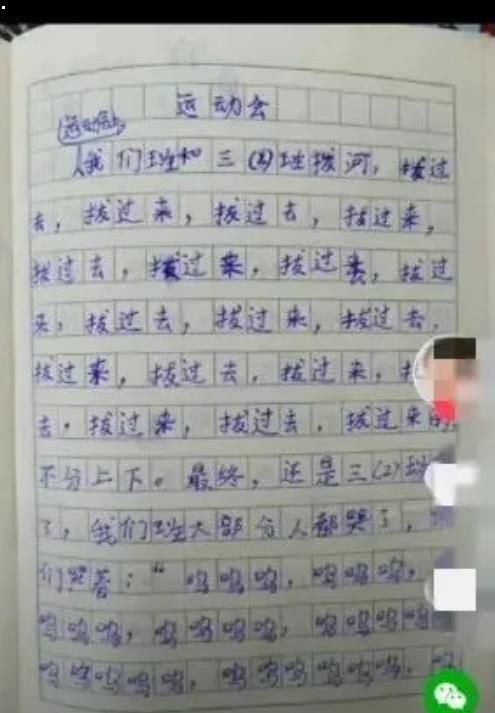 运动会
运动会上,
我们班和三(2)班拨河,拔过
去,拔过来,拔过去,拔过来,
拔过去,拔过来,拔过去,拔过
来,拔过去,拔过来,拔过去,
拔过来,拔过去,拔过来,
去,拔过来,拔过去,拔过来的,
不分上下。最终,还是三(2)班
了,我们班大部分人都哭了,
们哭着:“呜呜呜,呜呜呜,
呜呜呜,呜呜呜呜,呜呜呜呜
呜呜呜呜呜,呜呜呜呜呜呜,呜